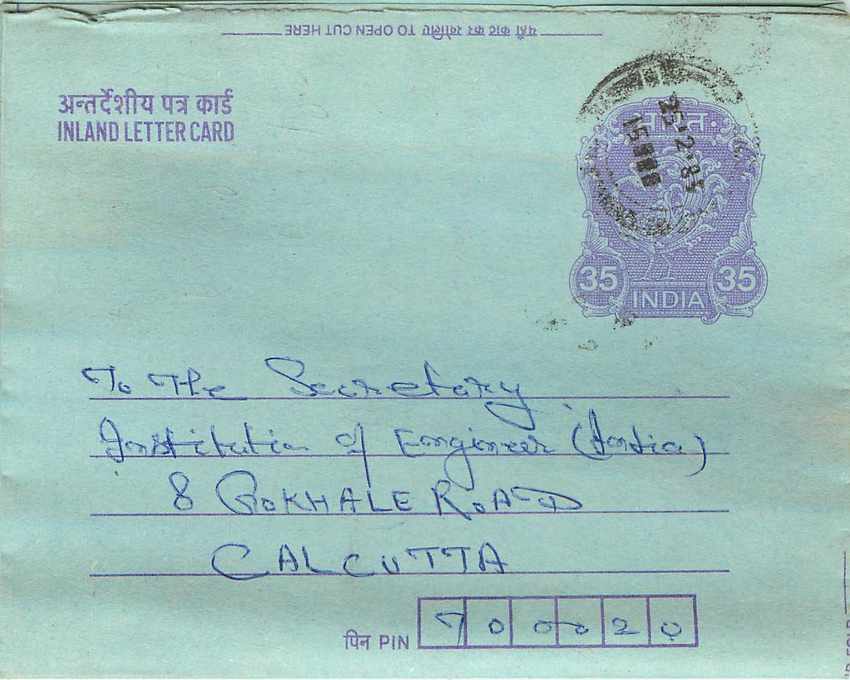 यहाँ काट कर खोलिए TO OPEN CUT HERE
अन्तर्देशीय पत्र कार्ड
INLAND LETTER CARD
भारत
25·2·85
35 INDIA 35
To The Secretary
Institution of Engineer (India)
8 GOKHALE ROAD
CALCUTTA
पिन PIN 700020